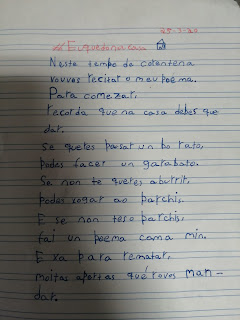 Eu quedo na casa
Neste tempo de corentena
vouvos recitar o meu poema.
Para comezar,
recorda que na casa debes que
dar.
Se queres pasar un bo rato,
podes facer un garabato.
Se non te queres aburrir,
podes xogar ao parchís.
E se non tes o parchís,
fai un poema coma min.
E xa para rematar,
moitas apertas qué rovos man-
dar.